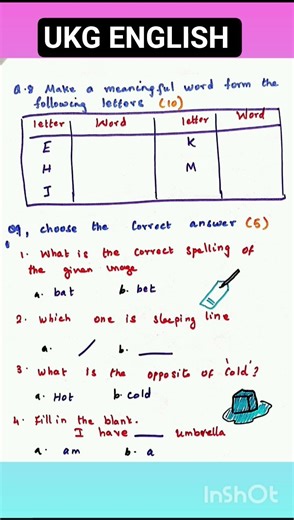 UKG ENGLISH
Q.8 Make a meaningful word form the
following letters (10)
letter Word letter Word
E K
H M
I
Q9, choose the correct answer (5)
1. What is the correct spelling of
the given image
a. bat b. bet
2. which one is sleeping line
a. b.
3. what is the opposite of 'cold'?
a. Hot b. cold
4. Fill in the blank.
I have ___ umbrella
a. am b. a
InShOt